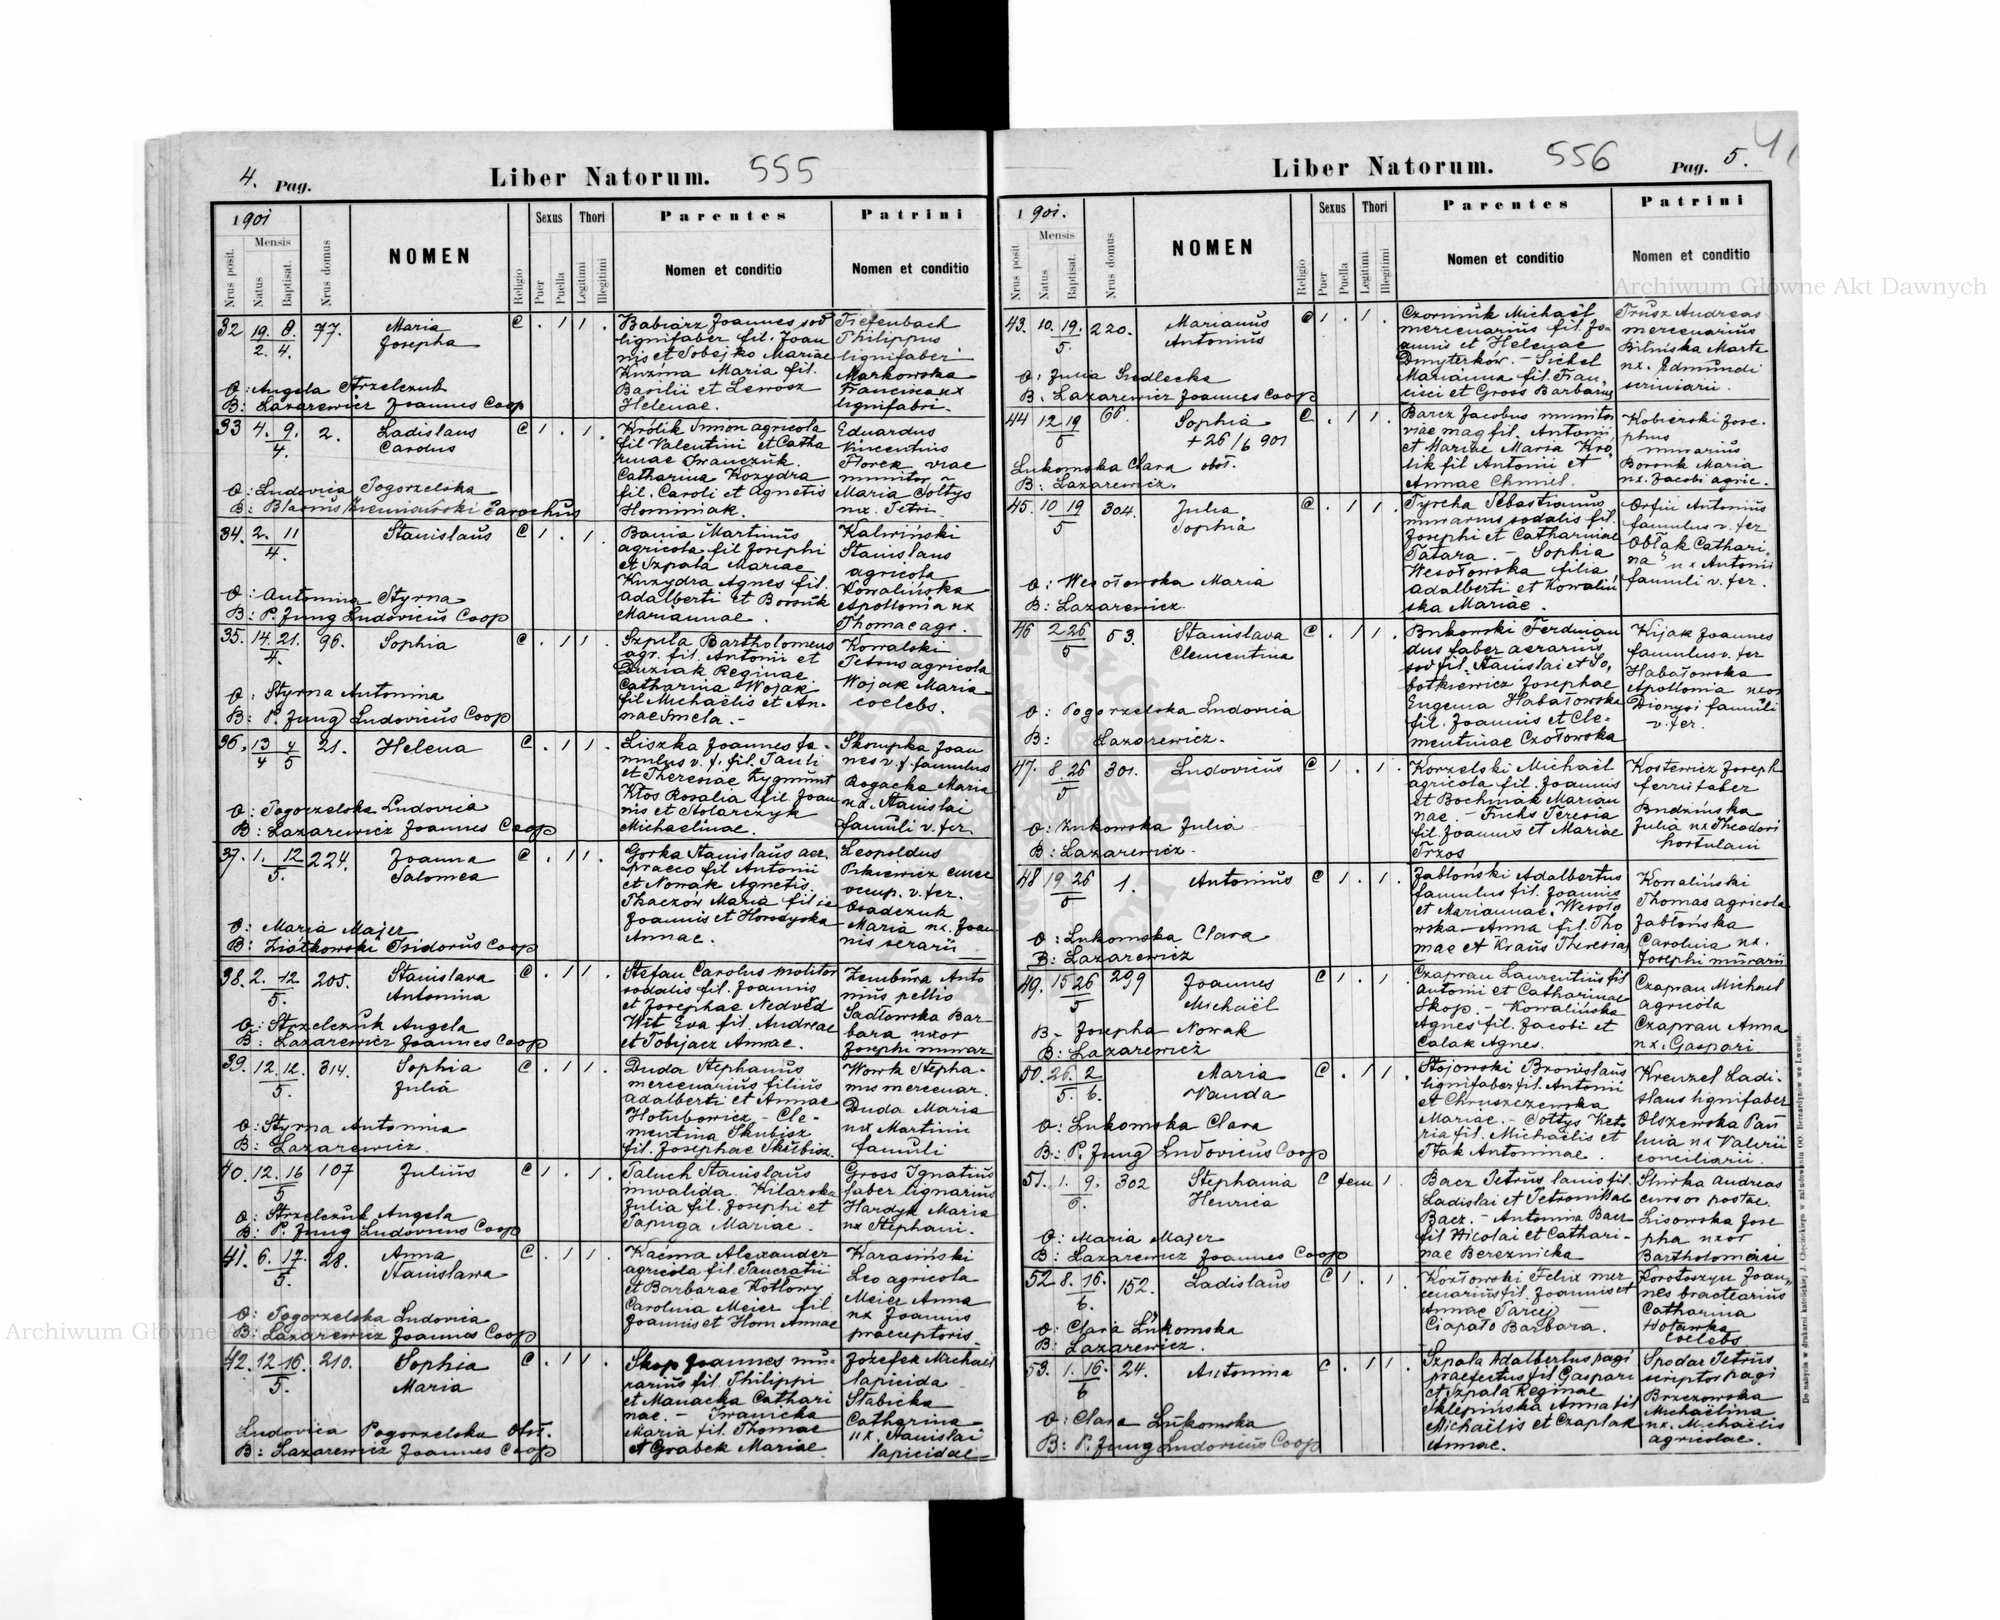 4. Pag. Liber Natorum. 555
1901
Nrus posit. Mensis Natus Baptisat. Nrus domus NOMEN Religio Sexus Puer Puella Thori Legitimi Illegitimi Parentes Nomen et conditio Patrini Nomen et conditio
32 19. 8. 77. Maria C . 1 1 . Babiarz Joannes sod Tiefenbach
2. 4. Josepha lignifaber fil. Joan Philippus
nis et Sobejko Mariae lignifaber
Kuzma Maria fil. Markowska
O: Angela Strzelczuk Basilii et Francisca ux
B: Lazarewicz Joannes Coop Helenae. lignifabri.
33 4. 9. 2. Ladislaus C 1 . 1 . Królik Simon agricola Eduardus
4. Carolus fil Valentini et Catha Vincentius
rinae Iwanczuk. Florek viae
Catharina Kozydra munitor
O: Ludovica Pogorzelska fil. Caroli et Agnetis Maria Sołtys
B: Parochus Hominiak. ux. Petri
34. 2. 11 Stanislaus C 1 . 1 . Bania Martinus Kaliwiński
4. agricola fil Josephi Stanislaus
et Szpala Mariae agricola
Agnes fil. Kowalińska
O: Antonina Styrna Adalberti et Apollonia ux
B: P. Jung Ludovicus Coop Mariannae. Thomae agr.
35. 14. 21. 96. Sophia C . 1 1 . Szpula Bartholomeus Kowalski
4. agr. fil. Antonii et Petrus agricola
Duziak Reginae Wojak Maria
O: Styrna Antonina Catharina Wojak coelebs.
B: P. Jung Ludovicus Coop fil Michaëlis et An-
nae Smela. -
36. 13 4 21. Helena C . 1 1 . Liszka Joannes fa- Skorupka Joan
4 5 mulus v. f. fil. Pauli nes v. f. famulus
et Theresiae Zygmunt Rogacka Maria
O: Pogorzelska Ludovica Kłos Rosalia fil Joan ux. Stanislai
B: Lazarewicz Joannes Coop nis et Stolarczyk famuli v. fer
Michaelinae.
37. 1. 12 224. Joanna C . 1 1 . Gorka Stanislaus aer. Leopoldus
5. Salomea praeco fil Antonii
et Nowak Agnetis occup. v. fer.
Tkaczów Maria filia Osadczuk
O: Maria Majer Joannis et Horodyska Maria ux. Joan
B: Ziółkowski Isidorus Coop Annae. nis serarii
38. 2. 12 205. Stanislava C . 1 1 . Stefan Carolus molitor Zembura Anto
5. Antonina sodalis fil. Joannis nius pellio
et Josephae Nedvěd Sadłowska Bar-
O: Strzelczuk Angela Wit Eva fil. Andreae bara uxor
B: Lazarewicz Joannes Coop et Tobijacz Annae. Josephi murar
39. 12. 12. 314. Sophia C . 1 1 . Duda Stephanus Wowk Stepha-
5. Julia mercenarius filius nus mercenar.
Adalberti et Annae Duda Maria
O: Styrna Antonina Hołubowicz - Cle- ux Martini
B: Lazarewicz. mentina Skubisz famuli
fil. Josephae Skubisz.
40. 12. 16 107 Julius C 1 . 1 . Paluch Stanislaus Gross Ignatius
5 invalida Kilarska faber lignarius
O: Strzelczuk Angela Julia fil. Josephi et Hardyk Maria
B: P. Jung Ludovicus Coop Papuga Mariae. ux Stephani.
41. 6. 17. 28. Anna C . 1 1 . Kaćma Alexander Karasiński
5. Stanislawa agricola fil. Pancratii Leo agricola
et Barbarae Kotlowy Meier Anna
O: Pogorzelska Ludovica Carolina Meier fil. ux Joannis
B: Lazarewicz Joannes Coop Joannis et Horn Annae praeceptoris.
42. 12 16. 210. Sophia C . 1 1 . Skop Joannes mu- Józefek Michaël
5. Maria rarius fil. Philippi lapicida
et Manacka Cathari Słabicka
nae. - Iwanicka Catharina
Ludovica Pogorzelska Obst. Maria fil. Thomae ux. Stanislai
B: Lazarewicz Joannes Coop et Grabek Mariae lapicidae
Liber Natorum. 556 Pag. 5. 41
1901.
Nrus posit Mensis Natus Baptisat. Nrus domus NOMEN Religio Sexus Puer Puella Thori Legitimi Illegitimi Parentes Nomen et conditio Patrini Nomen et conditio
43. 10. 19. 220. Marianus C 1 . 1 . Czorniuk Michaël Trusz Andreas
5 Antonius mercenarius fil. Jo- mercenarius
annis et Helenae Bilińska Marta
Dmyterków. - Sichel ux. Edmundi
O: Julia Siedlecka Marianna fil. Fran-
B. Lazarewicz Joannes Coop cisci et Gross Barbarae
44 12 19 66. Sophia C . 1 1 . Barcz Jacobus munitor Kobierski Jose-
5 + 26/6 901 viae mag fil. Antonii phus
et Mariae Maria Kró murarius
Lukomska Clara obst. lik fil Antonii et Boronk Maria
B: Lazarewicz. Annae Chmiel. ux. Jacobi agric.
45. 10 19 304. Julia C . 1 1 . Tyrcha Sebastianus Orfin Antonius
5 Sophia murarius sodalis fil. famulus v. fer
Josephi et Catharinae Obłak Cathari-
Tatara. - Sophia na ux Antonii
O: Wesołowska Maria Wesołowska filia famuli v. fer.
B: Lazarewicz. Adalberti et Kowaliń
ska Mariae.
46 2 26 53. Stanislava C . 1 1 . Bukowski Ferdinan Kijak Joannes
5 Clementina dus faber aerarius famulus v. fer
sod fil. Stanislai et So- Habatowska
botkiewicz Josephae Apollonia uxor
O: Pogorzelska Ludovica Eugenia Habatowska Dionysi famuli
B: Lazarewicz. fil. Joannis et Cle- v. fer.
mentinae Czołowska
47. 8. 26 301. Ludovicus C 1 . 1 . Korzelski Michaël Kostewicz Joseph
5 agricola fil. Joannis ferrifaber
et Bochniak Marian Budzińska
nae. - Fuchs Teresia Julia ux Theodori
O: Żukowska Julia fil. Joannis et Mariae hortulani
B: Lazarewicz. Trzos
48 19 26 1. Antonius C 1 . 1 . Jabłoński Adalbertus Kowaliński
5 famulus fil. Joannis Thomas agricola
et Mariannae. Wesoło Jabłońska
O: Lukomska Clara wska Anna fil. Tho Carolina ux.
B: Lazarewicz mae et Kraus Theresiae Josephi murarii
49. 15 26 299 Joannes C 1 . 1 . Czapran Laurentius fil Czapran Michael
5 Michaël Antonii et Catharinae agricola
B - Josepha Nowak Skop. - Kowalińska Czapran Anna
B: Lazarewicz Agnes fil. Jacobi et ux. Gaspari
Calak Agnes.
50. 26. 2 Maria C . 1 1 . Stojowski Bronislaus Kreuzel Ladi-
5. 6. Vanda lignifaber fil. Antonii slaus lignifaber
et Chruszczewska Olszewska Pau
O: Lukomska Clara Mariae. - Sołtys lina ux Valerii
B: P. Jung Ludovicus Coop ria fil. Michaëlis et conciliarii.
Ptak Antoninae.
51. 1. 9. 302 Stephania C fem 1. Bacz Petrus lanio fil. Shirka Andreas
6. Henrica Ladislai et Petronillae cursor postae.
Bacz. - Antonina Bacz Lisowska Jose
O: Maria Majer fil Nicolai et Cathari- pha uxor
B: Lazarewicz Joannes Coop nae Bereznicka Bartholomaei
52 8. 16. 152. Ladislaus C 1 . 1 . Kozłowski Felix mer Korotoszyn Joan-
6. cenarius fil. Joannis et nes bractearius
O: Clara Lukomska Annae Parcej - Catharina
B: Lazarewicz. Ciapało Barbara. coelebs
53. 1. 16. 24. Antonina C . 1 1 . Szpala Adalbertus pagi Spodar Petrus
6 praefectus fil Gaspari scriptor pagi
et Szpala Reginae Brzezowska
O: Clara Lukomska Sklepińska Anna fil Michaëlina
B: P. Jung Ludovicus Coop Michaëlis et Czaplak ux. Michaëlis
Annae. agricolae.
Do nabycia w drukarni katolickiej J. Chęcińskiego w zabudowaniu OO. Bernardynów we Lwowie.
Archiwum Główne Akt Dawnych
Archiwum Główne Akt Dawnych